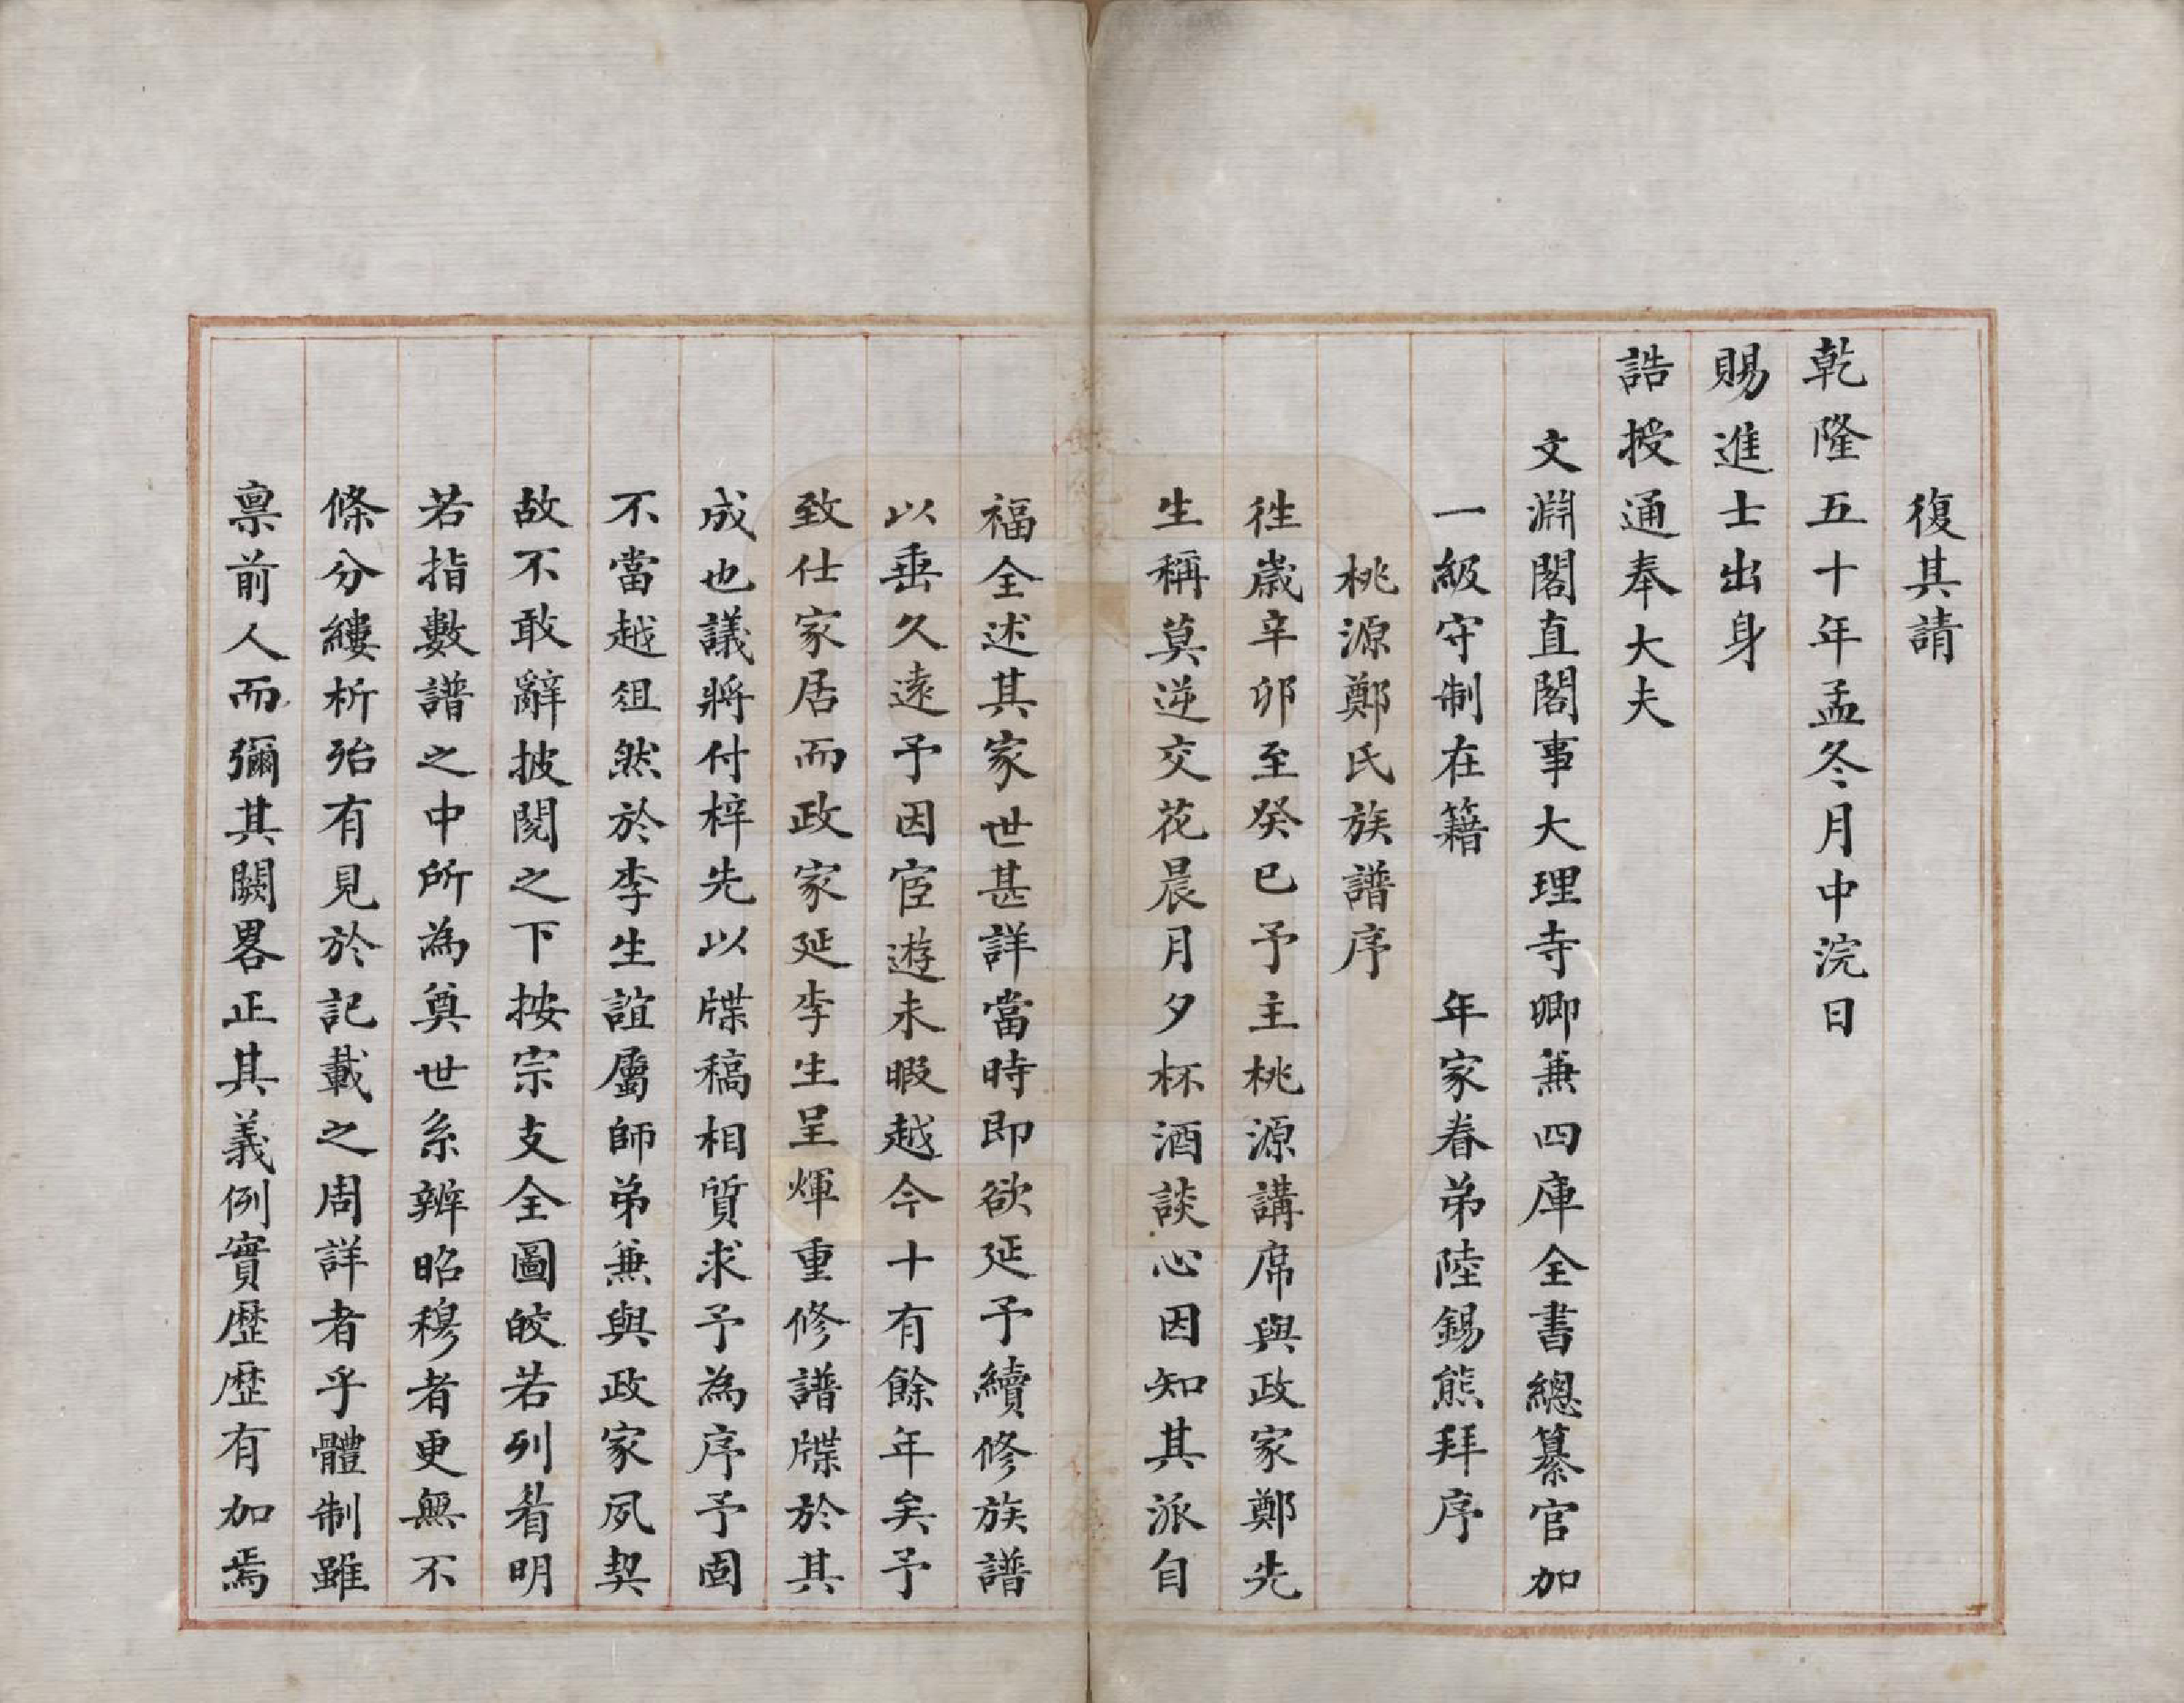 復其請
乾隆五十年孟冬月中浣日
賜進士出身
誥授通奉大夫
文淵閣直閣事大理寺卿兼四庫全書總纂官加
一級守制在籍　年家眷弟陸錫熊拜序
桃源鄭氏族譜序
徃歲辛卯至癸巳予主桃源講席與政家鄭先
生稱莫逆交花晨月夕杯酒談心因知其派自
福全述其家世甚詳當時即欲延予續修族譜
以垂久遠予因宦遊未暇越今十有餘年矣予
致仕家居而政家延李生呈煇重修譜牒於其
成也議將付梓先以牒稿相質求予為序予固
不當越俎然於李生誼屬師弟兼與政家夙契
故不敢辭披閱之下按宗支全圖皎若列眉明
若指數譜之中所為奠世系辨昭穆者更無不
條分縷析殆有見於記載之周詳者乎體制雖
禀前人而彌其闕畧正其義例實歷歷有加焉